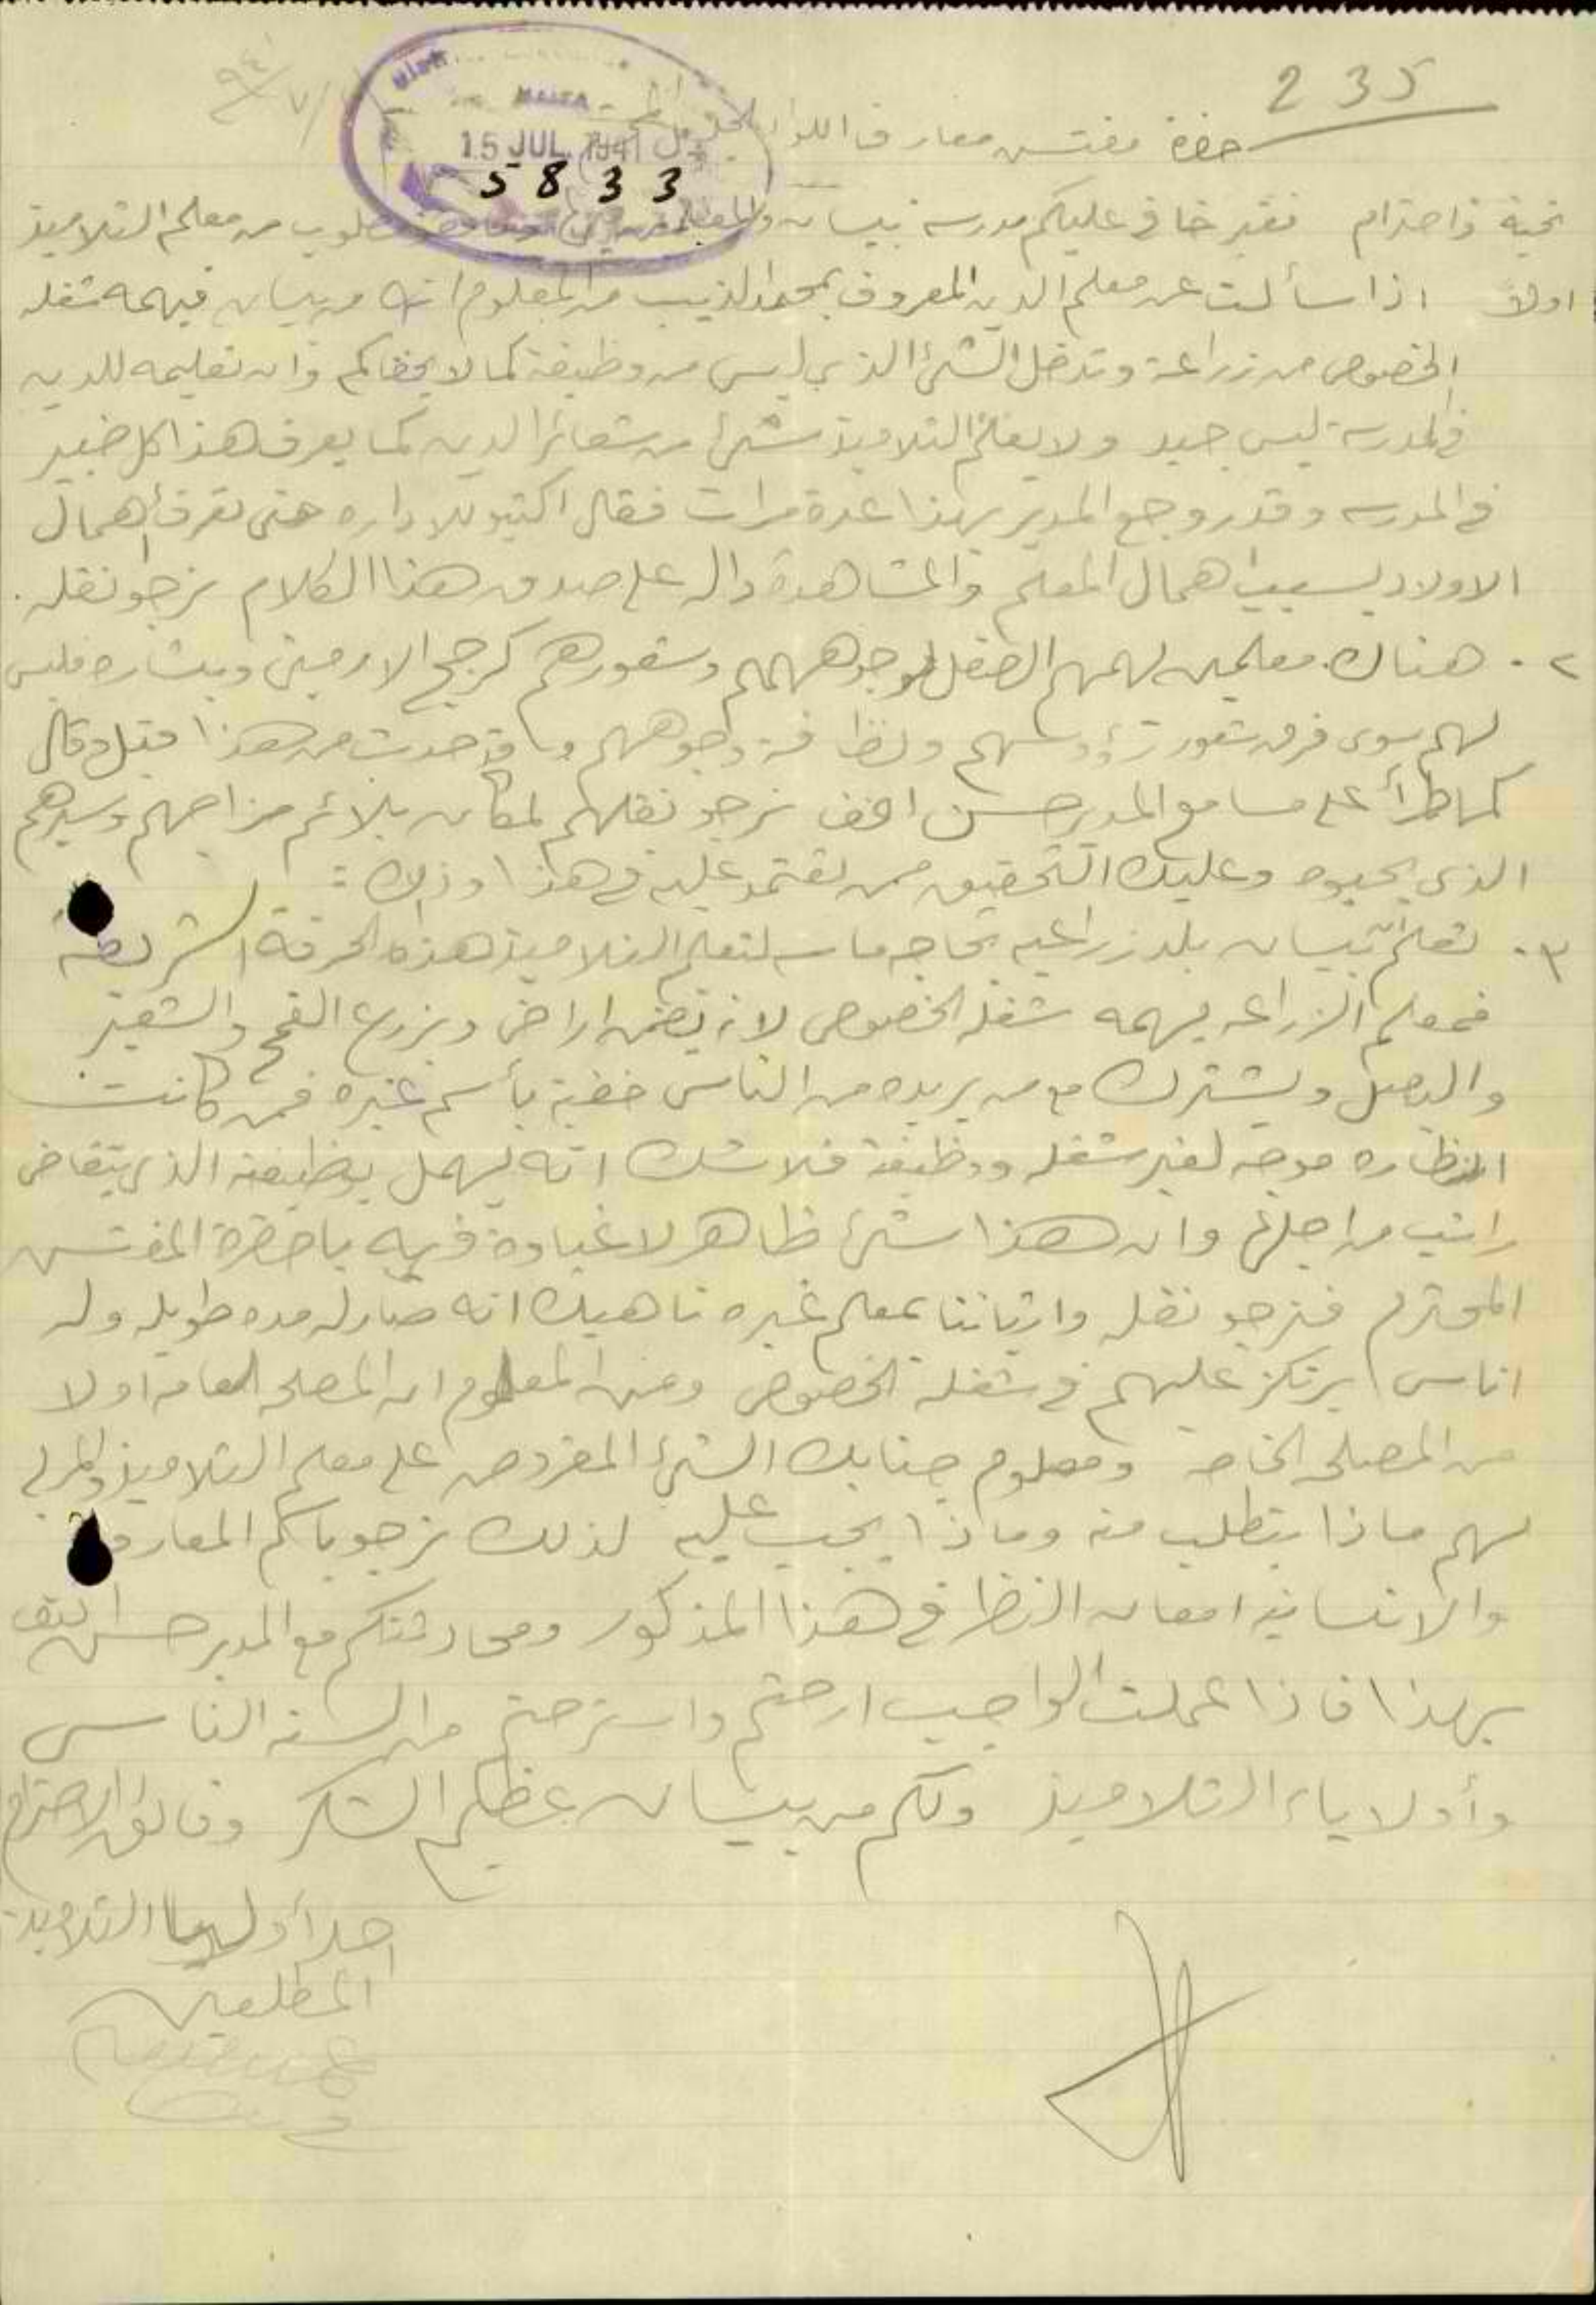 235
حضرة مفتش معارف اللواء
HAIFA
15 JUL 1941
5833
تحية واحترام فغير خافي عليكم مدرسة بيسان مطلوب من معلم التلاميذ
اولاً اذا سألت عن معلم الدين المعروف بمحمد الذيب من المعلوم انه من بيسان فيهمه شغله
الخصوصي من زراعة وتدخل الشئ الذي ليس من وظيفته كما لا يخفاكم وان تعليمه للدين
في المدرسة ليس جيد ولا يعلم التلاميذ شئ من شعائر الدين كما يعرف هذا كل خبير
في المدرسه وقد روجع المدير بهذا عدة مرات فقال اكتبو للاداره حتى تعرف أهمال
الاولاد بسبب اهمال المعلم والمشاهدة داله على صدق هذا الكلام نرجو نقله.
٢. هناك معلمين لهمهم الصقل لوجوههم وشعورهم كرجح الارميني وبشاره فليس
لهم سوى فرق شعور رؤوسهم ونظافة وجوههم وقد حدث من هذا قبل وقال
كما طرأ على مسامع المدير حسن افف نرجو نقلهم لمكان يلائم مزاجهم وسيرهم
الذي يحبوه وعليك التحقيق ممن تعتمد عليه في هذا وذلك:
٣. تعلم بيسان بلد زراعيه بحاجه ماسه لتعلم التلاميذ هذه الحرفة الشريفه
فمعلم الزراعه يهمه شغله الخصوصي لانه يضمن اراضي ويزرع القمح والشعير
والبصل ويشترك مع من يريده من الناس خفية بأسم غيره فمن كانت
انظاره موجه لغير شغله ووظيفته فلا شك انه يهمل بوظيفته الذي يتقاضى
راتب من اجلها وان هذا شئ ظاهر لا غباوة فيه يا حضرة المفتش
المحترم فنرجو نقله واتياننا بمعلم غيره ناهيك انه صار له مده طويله وله
اناس يرتكز عليهم في شغله الخصوصي ومن المعلوم ان المصلحه العامه اولا
من المصلحه الخاصه ومعلوم جنابك الشئ المفروض على معلم التلاميذ والمربي
لهم ماذا يتطلب منه وماذا يجب عليه لذلك نرجو باسم المعارف
والانسانيه امعان النظر في هذا المذكور ومحادثتكم مع المدير حسن افف
بهذا فاذا عملت الواجب ارحتم واسترحتم من السنة الناس
وأولاياء التلاميذ ولكم من بيسان عظيم الشكر وفائق الاحترام
احد أولياء التلاميذ
المطلعين